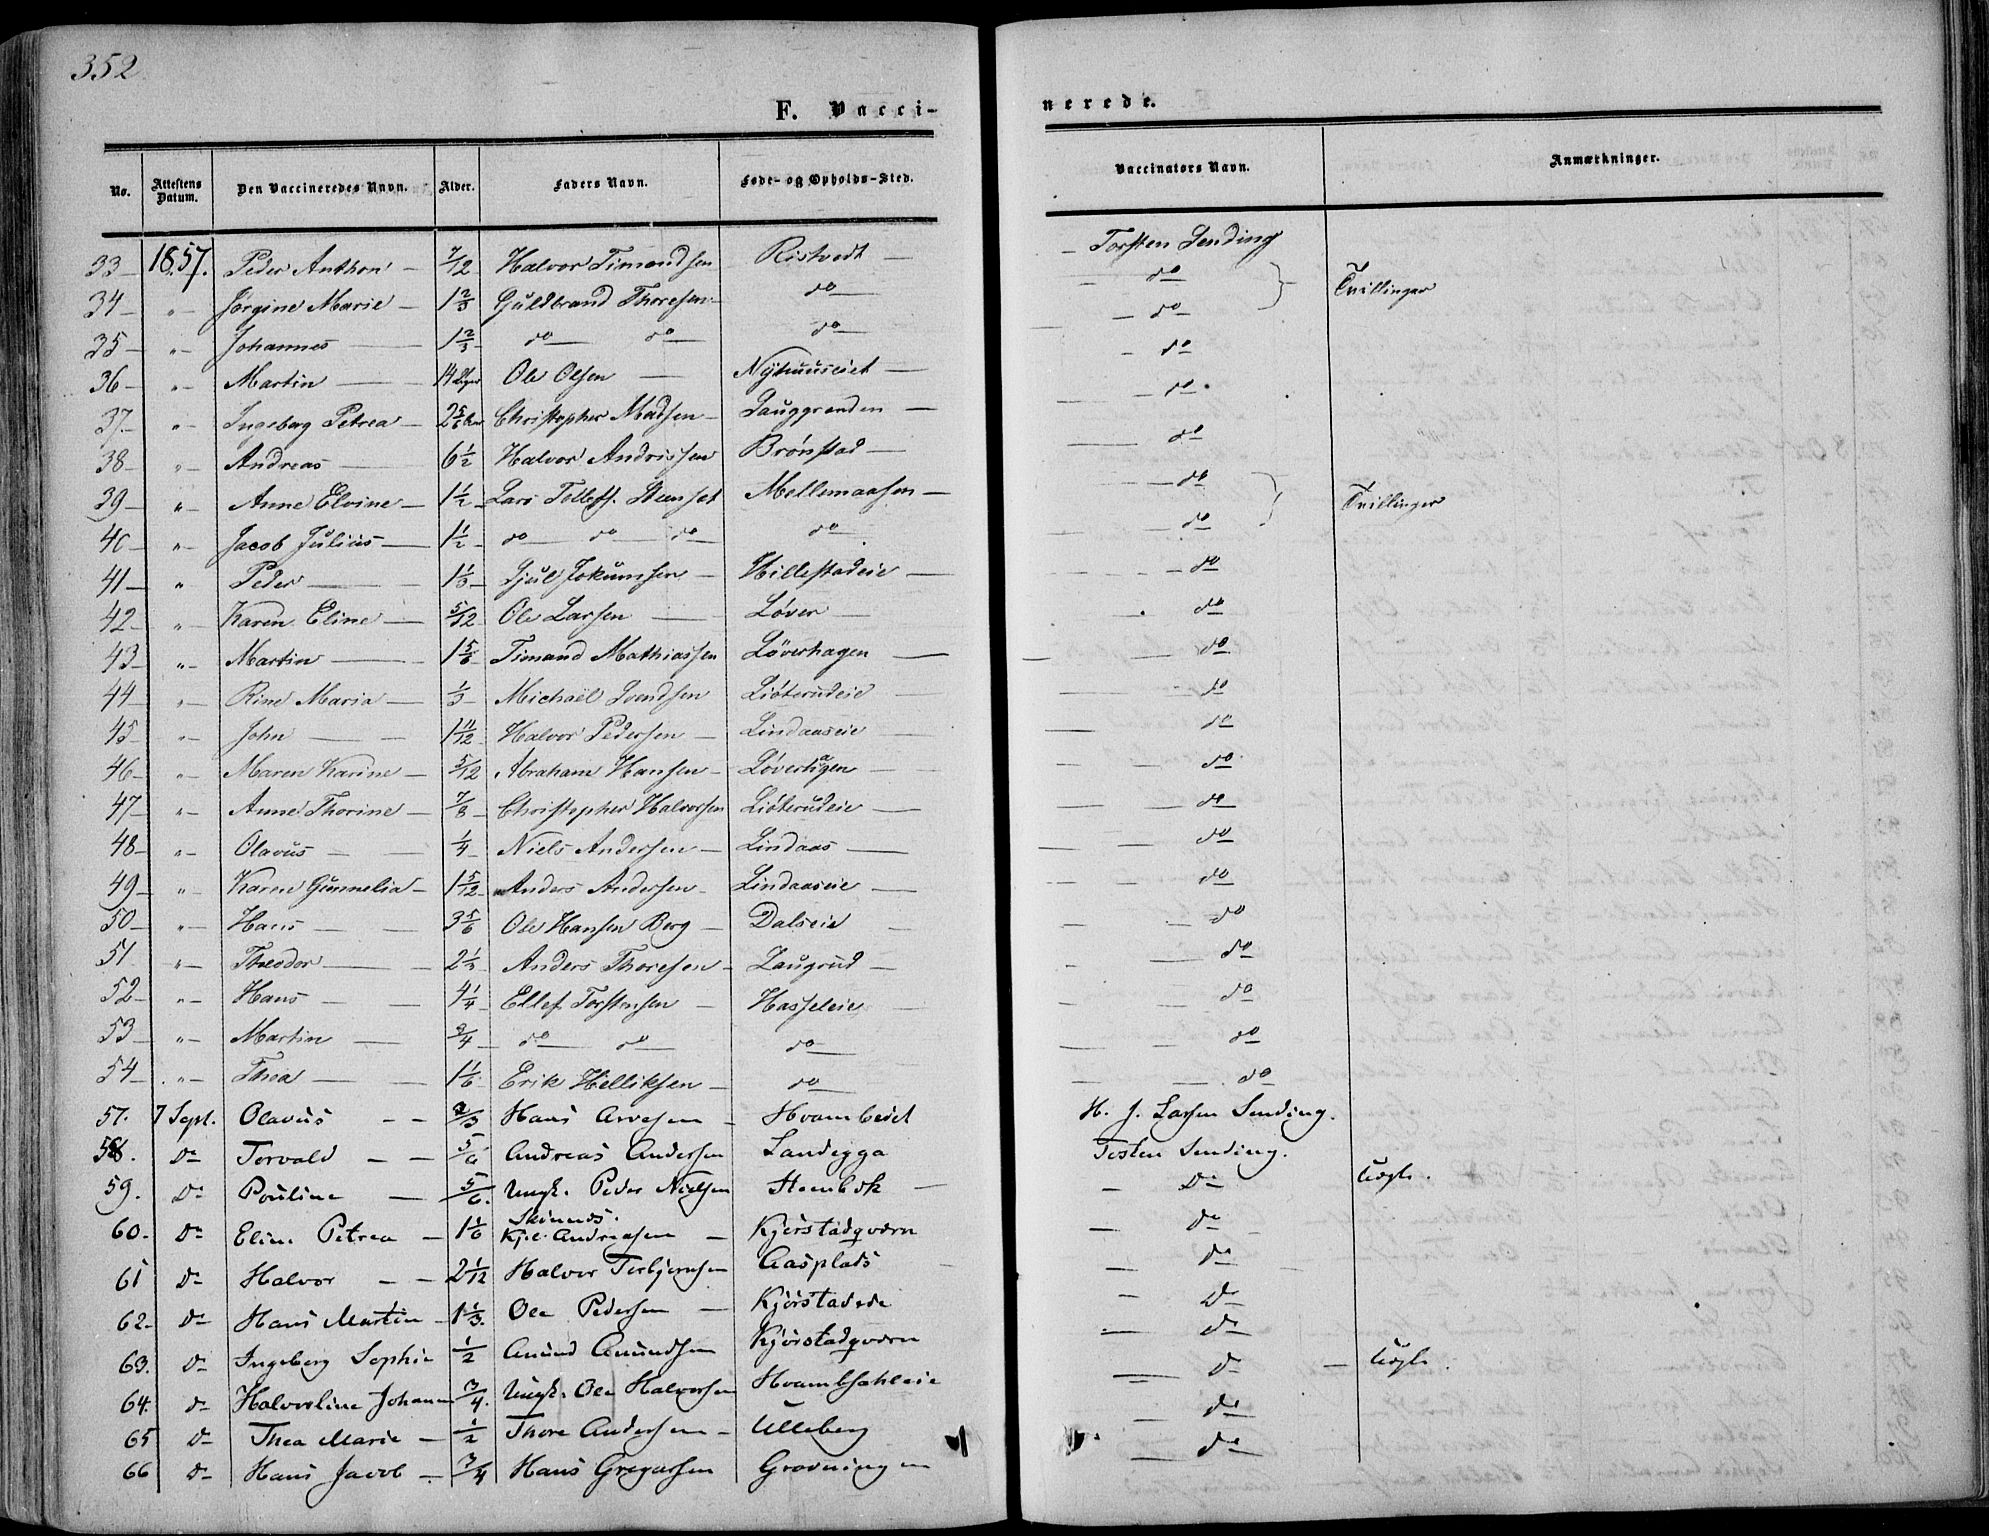 352
F. Vacci-
nerede.
No. Attestens Datum. Den Vaccineredes Navn. Alder. Faders Navn. Føde- og Opholds-Sted. Vaccinators Navn. Anmærkninger.
33 1857. Peder Anthon 7/12 Halvor Timandsen Ristvedt Torsten Sending
34 " Jørgine Marie 1 2/3 Guldbrand Thoresen do do Tvillinger
35 " Johannes 1 2/3 do do do do
36 " Martin 14 Ole Olsen Nÿhuuseiet do
37. " Ingeborg Petrea 2 5/6 Christopher Madsen Hauggranden do
38 " Andreas 6 1/2 Halvor Andersen Brønstad do
39 " Anne Elvine 1 1/2 Lars Tollefs. Mellemaasen do Tvillinger
40 " Jacob Julius 1 1/2 do do do do do
41 " Peder 1 1/3 Gjul Jokumsen Hillestadeie do
42 " Karen Eline 5/12 Ole Larsen Løver do
43 " Martin 1 5/6 Timand Mathiassen Løverhagen do
44 " Rine Maria 1/3 Michaël Svendsen Liøterudeie do
45 " John 1 11/12 Halvor Pedersen Lindaaseie do
46 " Maren Karine 5/12 Abraham Hansen Løverhagen do
47 " Anne Thorine 7/8 Christopher Halvorsen Liøterudeie do
48 " Olavus 1/4 Niels Andersen Lindaas do
49 " Karen Gunnelia 1 5/12 Anders Andersen Lindaaseie do
50 " Hans 3 5/6 Ole Hansen Berg Dalseie do
51 " Theodor 2 1/3 Anders Thoresen Haugrud do
52 " Hans 4 1/4 Ellef Torstensen Hasseleie do
53 " Martin 3/4 do do do do
54 " Thea 1 1/6 Erik Helliksen do do
57. 7 Sept. Olavus 2/3 Hans Arvesen H. J. Larsen Sending.
58. Do Torvald 5/6 Andreas Andersen Landegga Tosten Sending.
59. Do Pouline 5/6. Ungk. Peder Nielsen Stenbek Do Uægte.
60. Do Eline Petrea 1 1/6 Andreasen Kjørstadqværn Do
61 Do Halvor 2 1/12 Halvor Torbjørnsen Aasplads Do
62. Do Hans Martin 1 1/3. Ole Pedersen Do
63. Do Ingeborg Sophie 1/2 Amund Amundsen Kjørstadqværn Do
64. Do Halvorline Johanne 3/4. Ungk. Ole Halvorsen Do Uægte.
65 Do Thea Marie 1/2 Thore Andersen Ulleberg Do
66 Do Hans Jacob 3/4 Hans Gregersen Gravningen Do